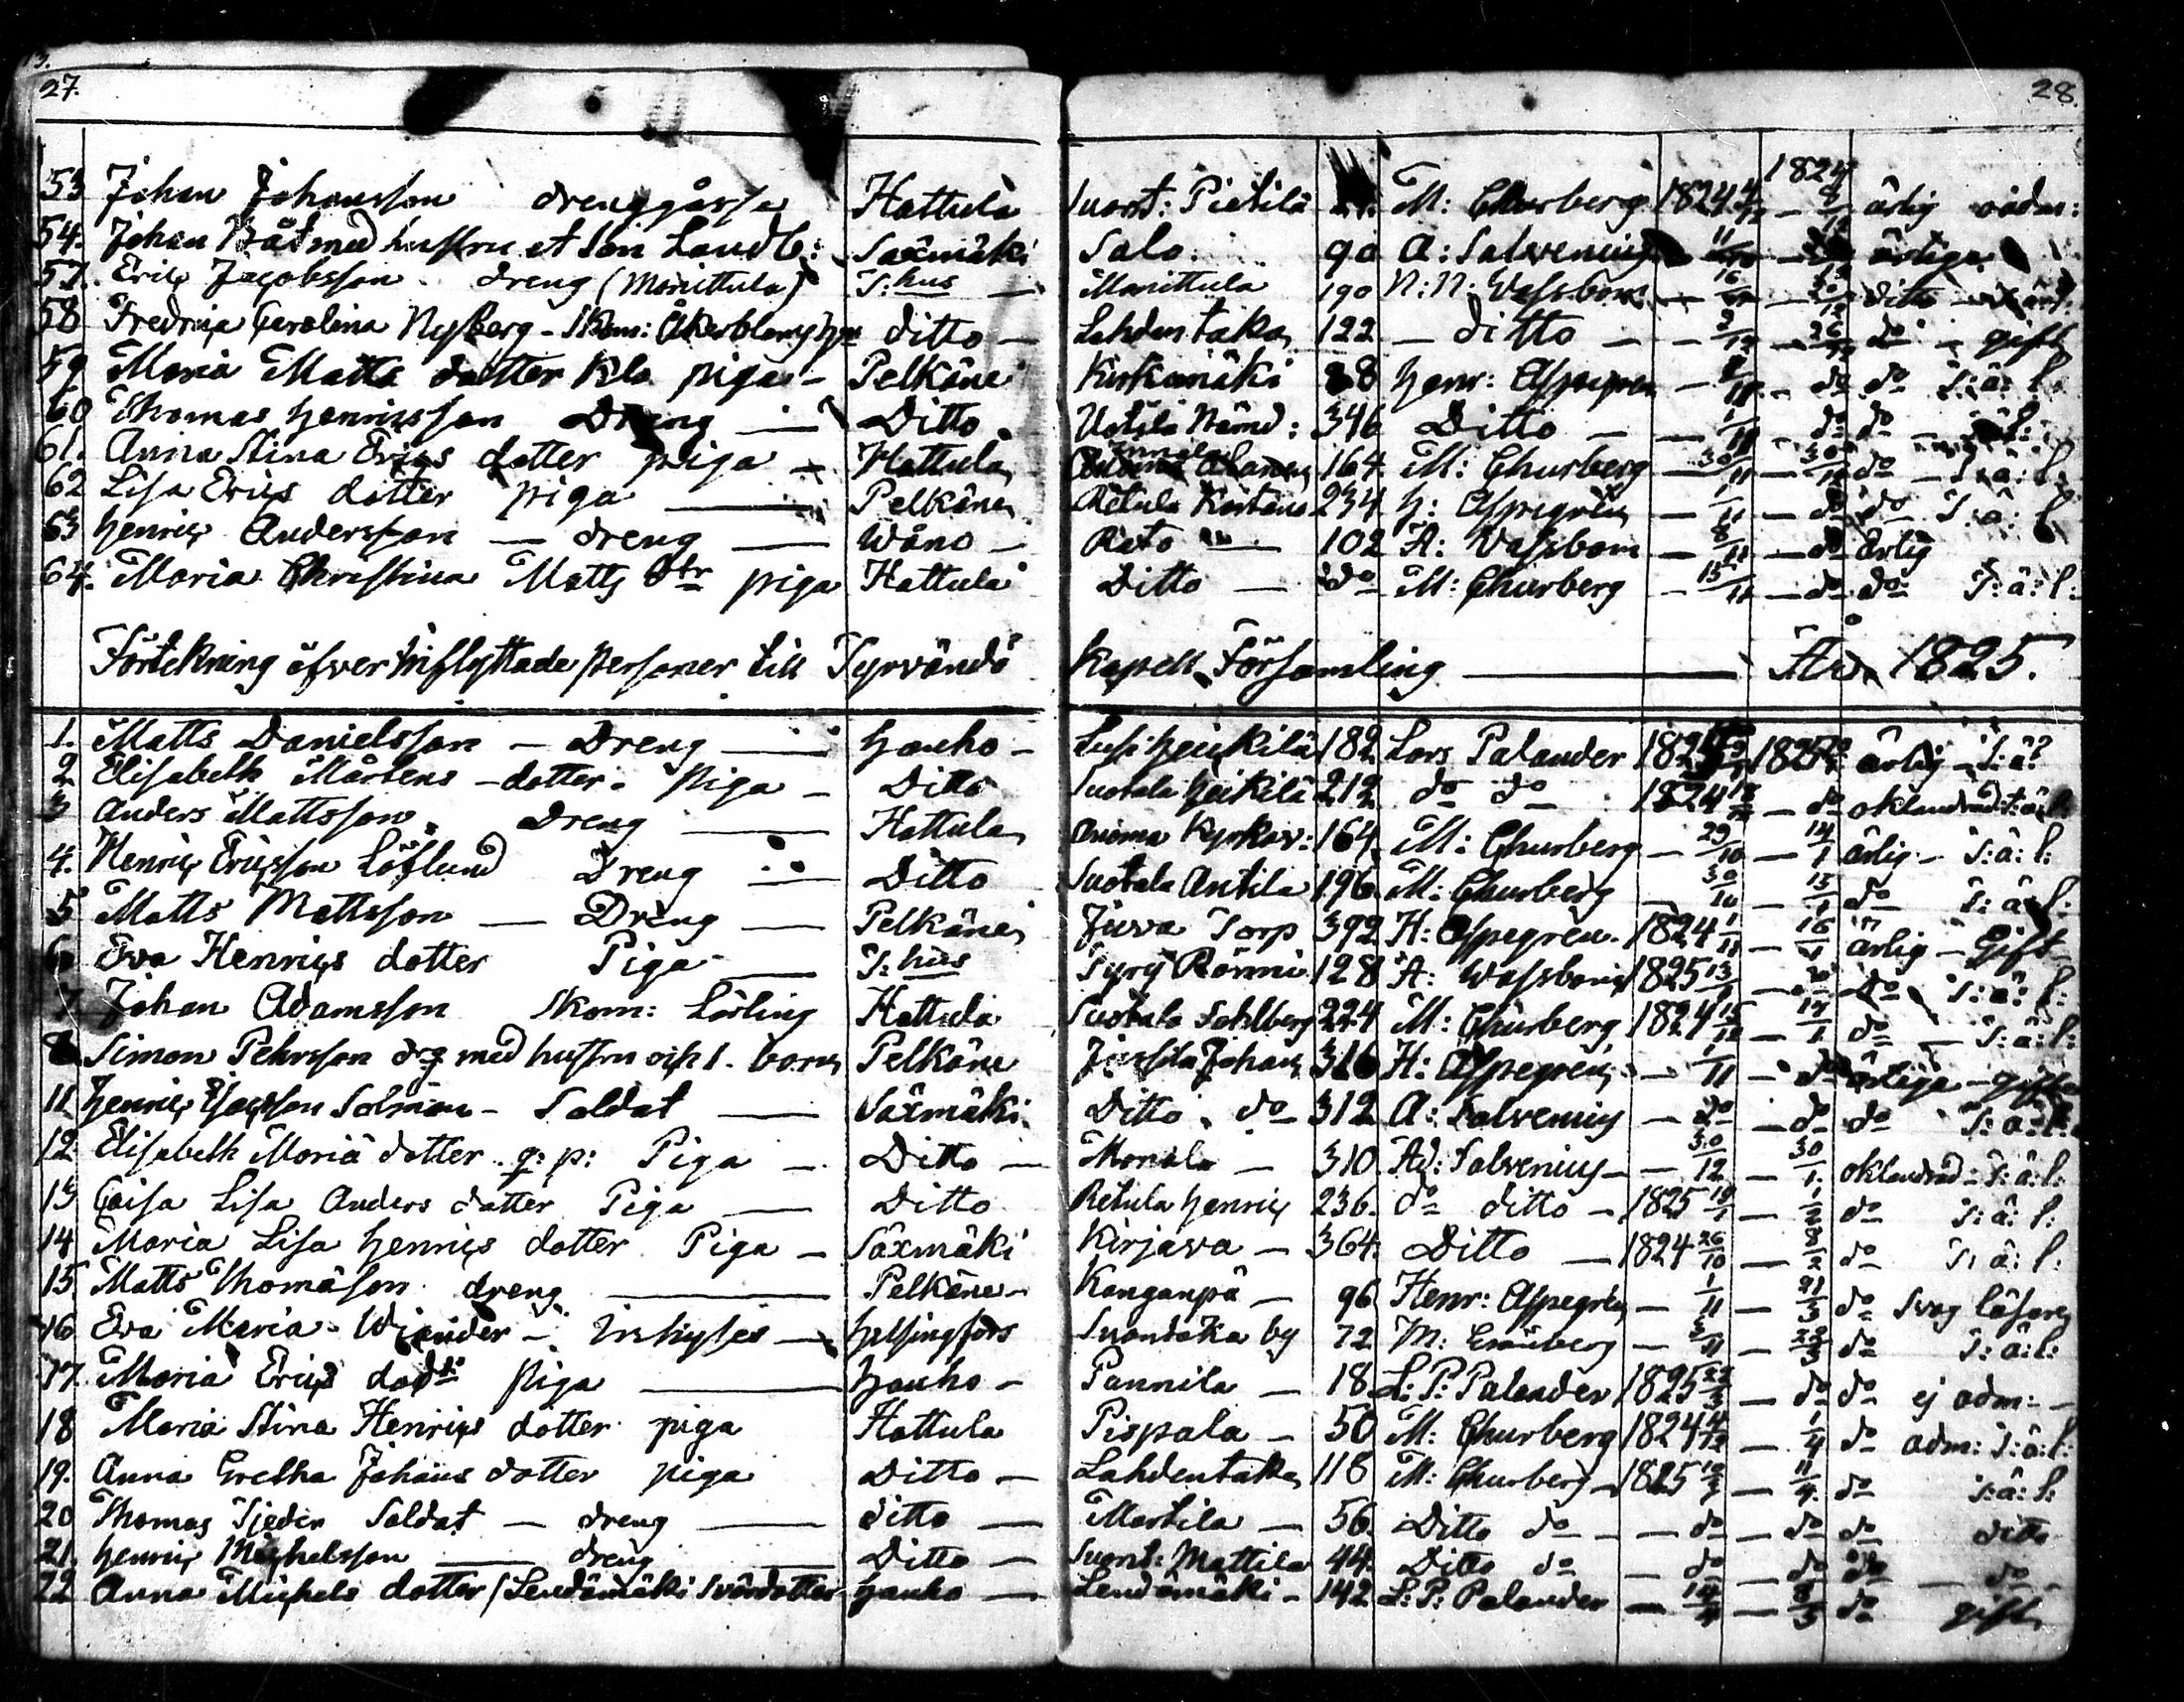 27. 28.
1824
53 Johan Johansson drenggåsse Hattula Suont: Pietilä M: Churberg 1824 4/12 – 8/12 ärlig oadm:
54. Johan Båt med hustru et Son Landb: Saxmäki Salo 90 A: Salvenius 11/ ärliga
57. Eric Jacobsson dreng (Monittula) T:hus — Monittula 190 N:N: Vassbom – 16/ – ditto
58 Fredrica Carolina Nyberg – Skom: Åkerbloms ditto – Lahdentaka 122 – ditto – – 2/12 – 26/12 do – gift
59 Maria Matts dotter Kla piga – Pelkäne Kirkomäki 88 Henr: Aspegren – /11 – do do S:ä: l:
60 Thomas Henricsson Dreng — Ditto Uotila Nämd: 346 Ditto – – 1/11 – do do
61. Anna Stina Erics dotter piga – Hattula Annila 164 M: Churberg – 30/11 – 30/12 do – S:ä: l:
62 Lisa Erics dotter piga — Pelkäne Retula 234 H: Aspegren – 1/11 – do do S:ä: l
63 Henric Andersson — dreng — Wåno – Rato — 102 A: Vassbom – 8/11 – do ärlig
64. Maria Christina Matts dtr piga Hattula Ditto — do M: Churberg – 15/11 – do do S:ä:l:
Förtekning öfver Inflyttade personer till Tyrvändö Kapell Församling — År 1825.
1. Matts Danielsson – Dreng — Hauho – Heikilä 182 Lars Palander 1825 ärlig – S:ä:
2 Elisabeth Mårtens – dotter – Piga – Ditto Suotala Heikilä 212 do do 1824 – do oklandrad S:ä:l
3 Anders Mattsson Dreng — Hattula Kyrkov: 164. M: Churberg – 29/10 – 14/1 ärlig – S:ä: l:
4. Henric Ericsson Löflund Dreng — Ditto Suotala Antila 196 M: Churberg – 30/10 – 15/1 do S:ä: l:
5 Matts Mattsson — Dreng — Pelkäne Juva Torp 392 H: Aspegren. 1824 1/11 – 16/1 ärlig – Gift
6 Eva Henrics dotter Piga — T:hus Syrj Rönni 128 A: Wassbom 1825 13/1 – do S:ä: l:
7 Johan Adamsson Skom: Lärling Hattula Suotala Sahlberg 224 M: Churberg 1824 15/12 – 17/1 do – S:ä:l:
8 Simon Pehrsson drg med hustru och 1. barn Pelkäne Jussila Johan 316 H: Aspegren – 1/11 – do ärliga – gifta
11 Henric Solman – Soldat — Saxmäki Ditto do 312 A: Salvenius – do – do do S:ä:l:
12. Elisabeth Maria dotter q: p: Piga – Ditto — Monala – 310 Ad: Salvenius – – 30/12 – 30/1 oklandrad – S:ä:l:
13 Caisa Lisa Anders dotter Piga — Ditto Retula Henric 236. do ditto – 1825 19/1 – 1/2 do S:ä: l:
14 Maria Lisa Henrics dotter Piga – Saxmäki Kirjava – 364. Ditto — 1824 26/10 – 8/2 do S:ä: l:
15. Matts Thomasson dreng — Pelkäne – Kanganpä – 96 Henr: Aspegren – 1/11 – 21/3 do svag läsare
16 Eva Maria Wiander – Inhyses — Helsingfors Suontaka by 72 M: – 3/11 – 22/3 do S:ä:l:
17. Maria Erics piga — Hauho – Pannila – 18 L: P: Palander 1825 22/3 – do do ej adm: –
18 Maria Stina Henrics dotter piga Hattula Pispala – 50 M: Churberg 1824 4/12 – 1/4 do adm: S:ä:l:
19. Anna Gretha Johans dotter piga Ditto – Lahdentaka 118 M: Churberg – 1825 – 11/4 do S:ä: l:
20 Thomas Tjeder Soldat — dreng — ditto — Martila – 56. Ditto do – – do – do do ditto
21. Henric Michelsson — dreng — Ditto – Suont: Mattila 44. Ditto do – do – do do – do –
22 Anna Michels dotter (Lendämäki Svärdotter Hauho — Lendämäki – 142 L: P: Palander – 14/4 – 8/5 do gift